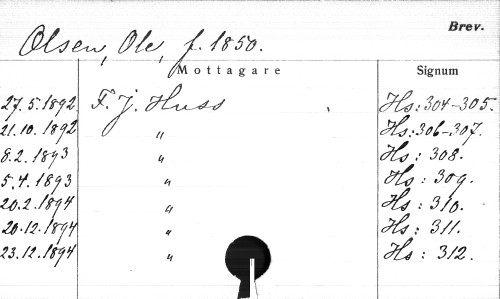 Brev.
Olsen, Ole, f. 1850.
Mottagare Signum
27.5.1892 F. J. Huss Hs: 304-305.
21.10.1892 " Hs: 306-307.
8.2.1893 " Hs: 308.
5.4.1893 " Hs: 309.
20.2.1894 " Hs: 310.
20.12.1894 " Hs: 311.
23.12.1894 " Hs: 312.